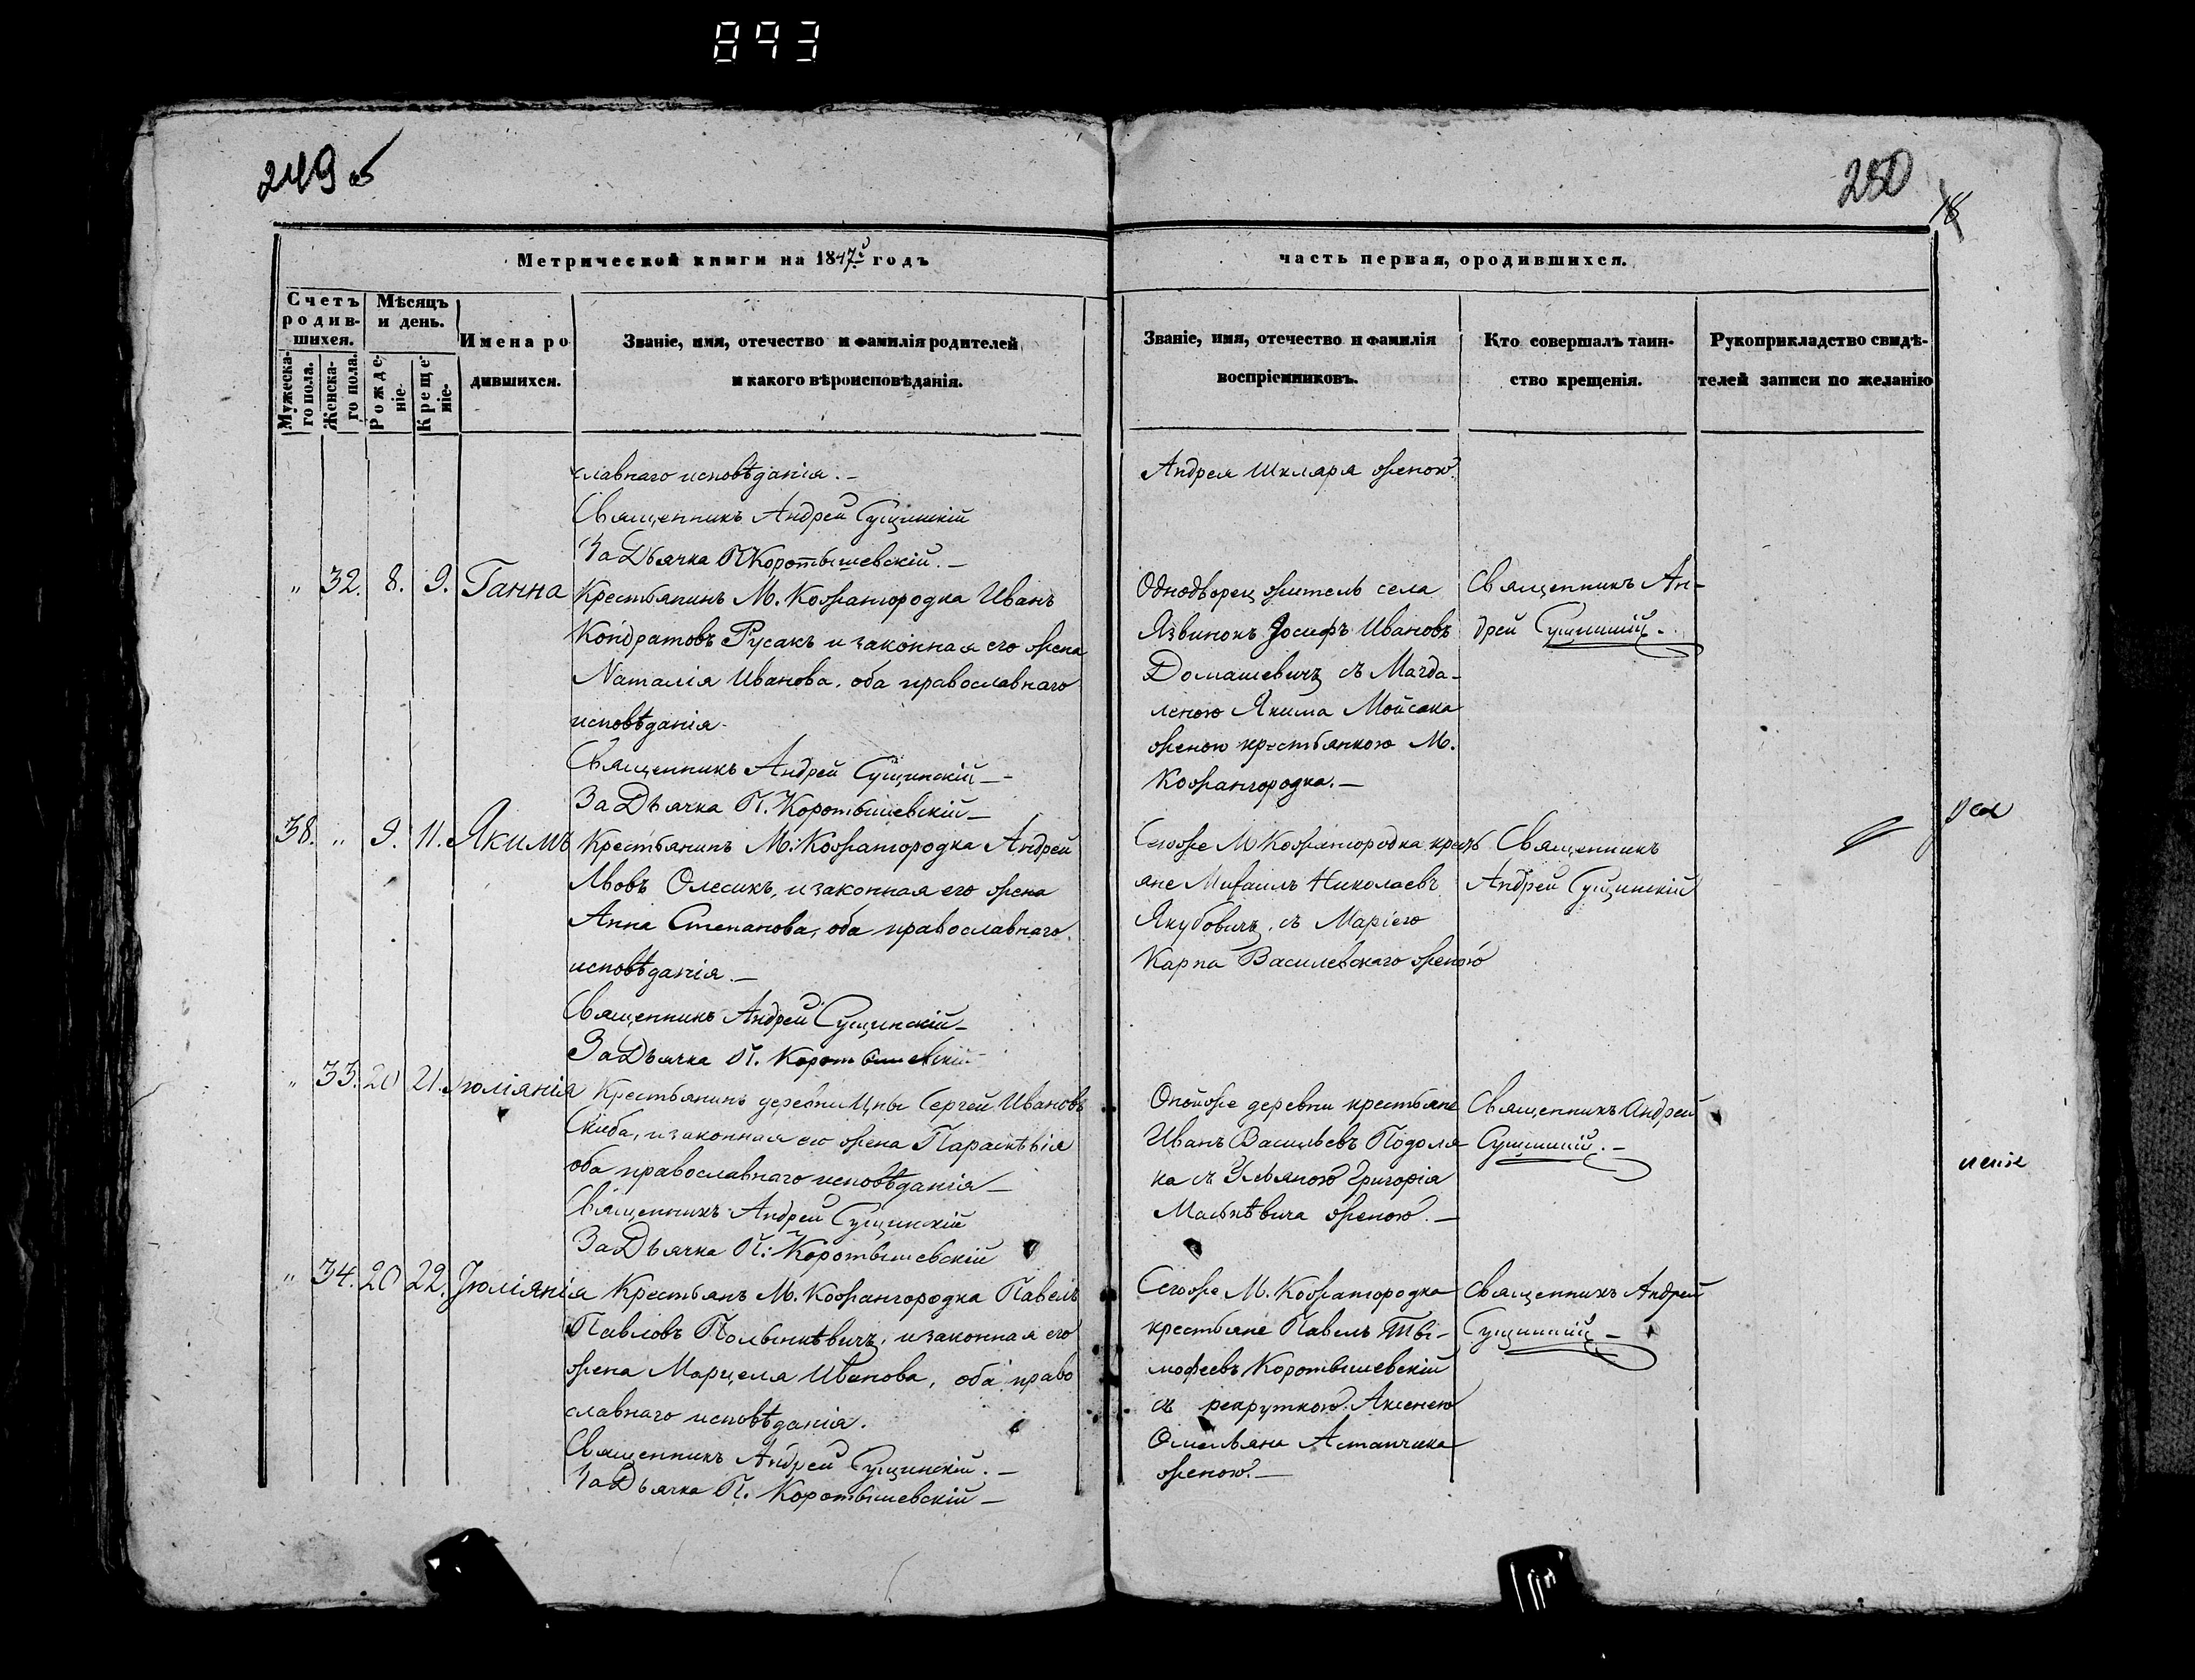 893
249 об
250
18
Метрической книги на 1847й годъ
часть первая, ородившихся.
Счетъ родив-шихся.
Мужеска-го пола.
Женска-го пола.
Мѣсяцъ и день.
Рожде-ніе.
Креще-ніе.
Имена ро
дившихся.
Званіе, имя, отечество и фамилія родителей
и какого вѣроисповѣданія.
Званіе, имя, отечество и фамилія
воспріемниковъ.
Кто совершалъ таин-
ство крещенія.
Рукоприкладство свидѣ-
телей записи по желанію
славнаго исповѣданія. –
Священникъ Андрей Сущинскій
За Дьячка П Коротышевскій. –
Андрея Шкляра женою.
" 32. 8. 9. Ганна
Крестьянинъ М. Кожангородка Иванъ
Кондратовъ Русакъ и законная его жена
Наталія Иванова, оба православнаго
исповѣданія.
Священникъ Андрей Сущинскій –
За Дьячка П. Коротышевскій –
Однодворец житель села
Язвинокъ Іосифъ Ивановъ
Домашевичъ съ Магда-
леною Якима Мойсака
женою крестьянкою М.
Кожангородка. –
Священникъ Ан-
дрей Сущинскій.
38. " 9. 11. Якимъ
Крестьянинъ М: Кожангородка Андрей
Львовъ Олесикъ, и законная его жена
Анна Степанова, оба православнаго
исповѣданія. –
Священникъ Андрей Сущинскій –
За Дьячка П. Коротышевскій
Сегоже М Кожангородка кресть
яне Михаилъ Николаевъ
Якубовичъ, съ Маріею
Карпа Василевскаго женою
Священникъ
Андрей Сущинскій
" 33. 20 21. Іюліянія
Крестьянинъ деревни Цны Сергей Ивановъ
Скиба, и законная его жена Параскѣвія
оба православнаго исповѣданія –
Священникъ Андрей Сущинскій
За Дьячка П: Коротышевскій
Онойже деревни крестьяне
Иванъ Васильевъ Подоля
ка съ Ульяною Григорія
Мацкѣвича женою. –
Священникъ Андрей
Сущинскій. –
" 34. 20 22. Іюліянія
Крестьянъ М. Кожангородка Павелъ
Павловъ Полынкѣвичъ, и законная его
жена Марцеля Иванова, оба право
славнаго исповѣданія.
Священникъ Андрей Сущинскій. –
За Дьячка П. Коротышевскій –
Сегоже М. Кожангородка
крестьяне Павелъ Ты-
мофеевъ Коротышевскій
съ рекруткою Аксенею
Омельяна Астапчика
женою. –
Священникъ Андрей
Сущинскій –